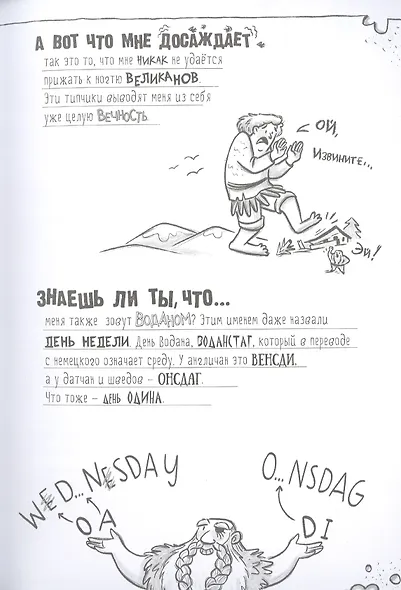 А ВОТ ЧТО МНЕ ДОСАЖДАЕТ
так это то, что мне НИКАК не удаётся
прижать к ногтю ВЕЛИКАНОВ.
Эти типчики выводят меня из себя
уже целую ВЕЧНОСТЬ.
ОЙ,
ИЗВИНИТЕ...
ЭЙ!
ЗНАЕШЬ ЛИ ТЫ, ЧТО...
меня также зовут ВОДАНОМ? Этим именем даже назвали
ДЕНЬ НЕДЕЛИ. День Водана, ВОДАНСТАГ, который в переводе
с немецкого означает среду. У англичан это ВЕНСДИ,
а у датчан и шведов – ОНСДАГ.
Что тоже – ДЕНЬ ОДИНА.
WED...NESDAY
O...NSDAG
OA
DI